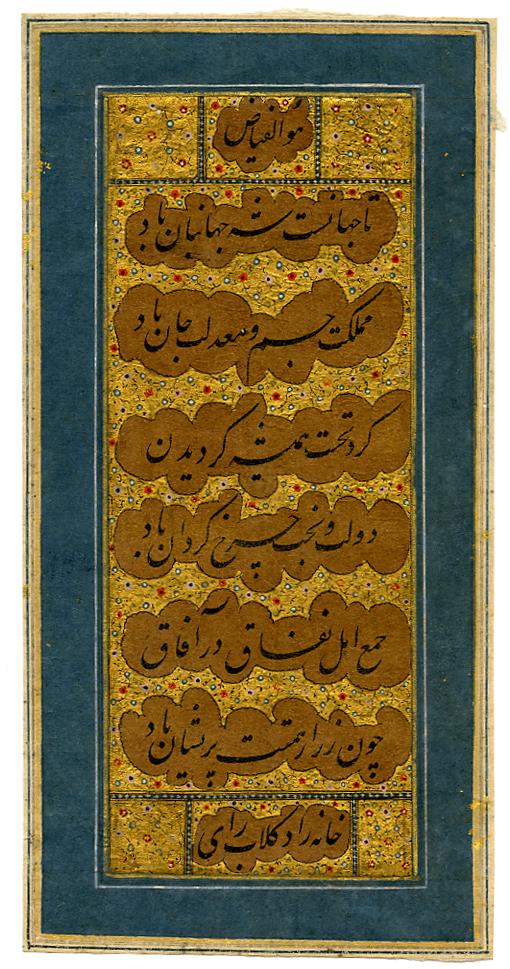 هوالفیاض
تا جهانست شه جهانبان باد
مملکت جسم و معدلت جان باد
کرد تختت همیشه کردیدن
دولت و بخت چرخ کردان باد
جمع اهل نفاق در آفاق
چون زر از همتت پریشان باد
خانه زاد کلاب رای